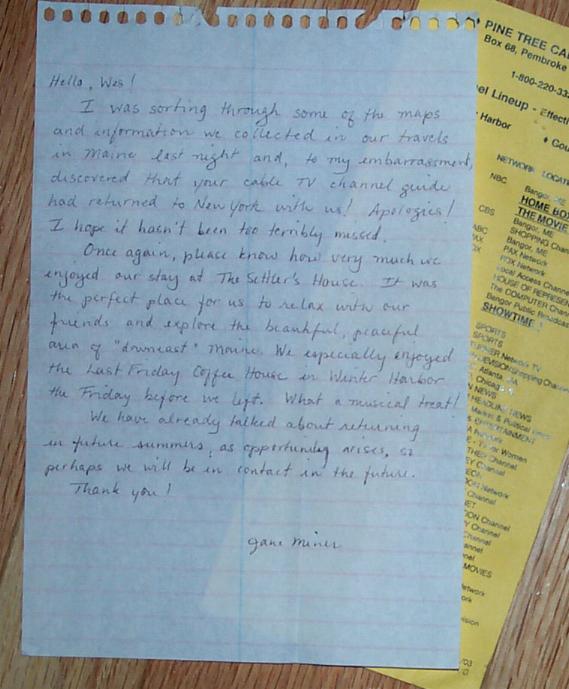 Hello, Wes!
I was sorting through some of the maps
and information we collected in our travels
in Maine last night and, to my embarrassment,
discovered that your cable TV channel guide
had returned to New York with us! Apologies!
I hope it hasn't been too terribly missed.
Once again, please know how very much we
enjoyed our stay at The Settler's House. It was
the perfect place for us to relax with our
friends and explore the beautiful, peaceful
area of "downeast" Maine. We especially enjoyed
the Last Friday Coffee House in Winter Harbor
the Friday before we left. What a musical treat!
We have already talked about returning
in future summers, as opportunity arises, so
perhaps we will be in contact in the future.
Thank you!
Jane Miner
PINE TREE CA
Box 68, Pembroke
1-800-220-33
el Lineup - Effecti
Harbor
♦ Cou
NETWORK LOCAT
NBC
Bangor, ME
HOME BO
THE MOVIE
CBS
SHOPPING Chan
Bangor, ME
ABC
Bangor, ME
PAX Network
FOX Network
Local Access Channe
HOUSE OF REPRESEN
The COMPUTER Chan
Bangor Public Broadcas
SHOWTIME
SPORTS
SPORTS
Network TV
Shopping Chan
Atlanta
Chicag
NEWS
HEADLINE NEWS
Market & Political
ENTERTAINMENT
for Women
Channel
Channel
Network
Channel
Channel
Channel
MOVIES